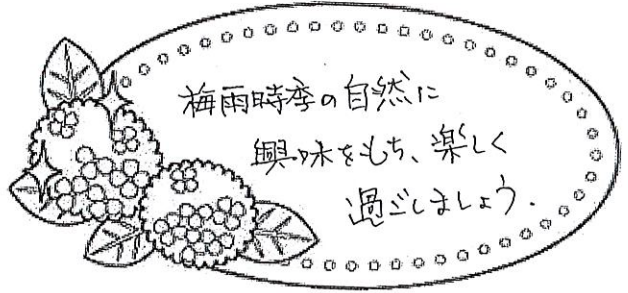 梅雨時季の自然に
興味をもち、楽しく
過ごしましょう.